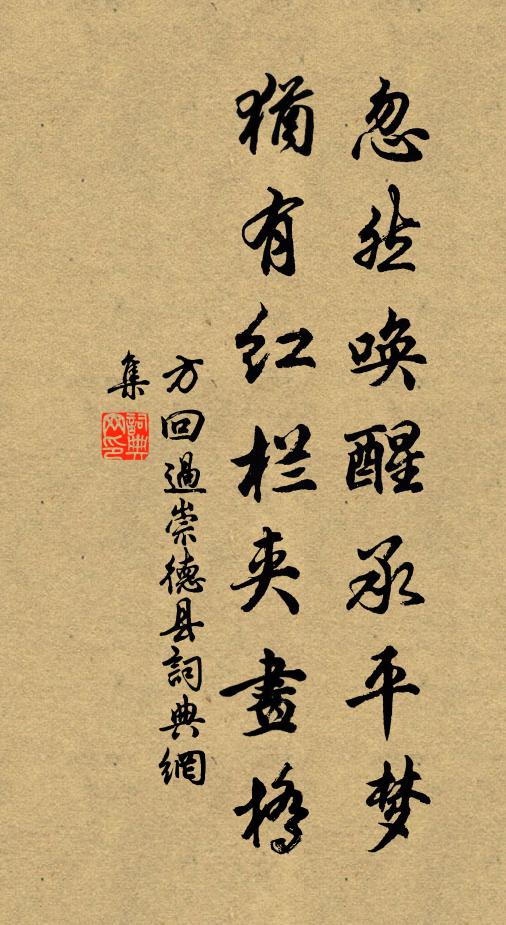 忽然唤醒承平梦
猶有红栏夹畫橋
方回過崇德县詞典網
集
詞典
网印